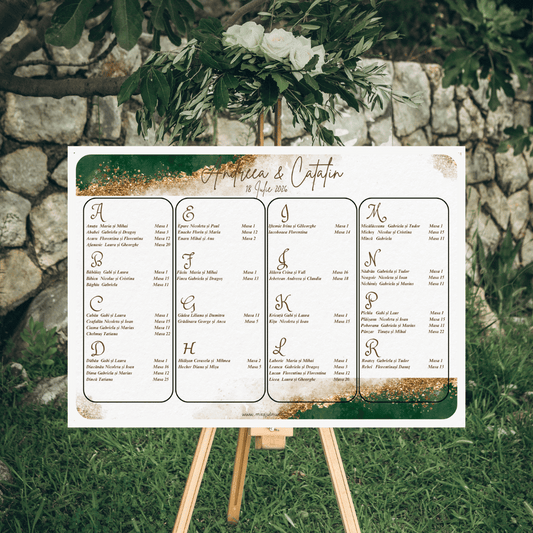 Andreea & Catalin
18 Iulie 2026
A
Anata Maria și Mihai Masa 1
Abalei Gabriela și Dragoș Masa 5
Acaru Florentina și Florentina Masa 12
Afanasie Laura și Gheorghe Masa 20
B
Băbălug Gabi și Laura Masa 1
Băbica Nicoleta și Cristina Masa 15
Băghin Gabriela Masa 11
C
Cabăn Gabi și Laura Masa 1
Ceafalău Nicoleta și Ioan Masa 15
Cazma Gabriela și Marius Masa 11
Chelmaș Tatiana Masa 22
D
Daba Gabi și Laura Masa 1
Dasclndu Nicoleta și Ioan Masa 16
Dana Gabriela și Marius Masa 11
Dincă Tatiana Masa 25
E
Epure Nicoleta și Paul Masa 1
Enache Florin și Maria Masa 12
Enuru Mihai și Ana Masa 2
F
Făsie Maria și Mihai Masa 1
Fanea Gabriela și Dragoș Masa 5
G
Gădea Liliana și Dumitru Masa 11
Grădinaru George și Anca Masa 5
H
Hălășan Cerasela și Mihnea Masa 2
Hector Diana și Miya Masa 5
I
Iftemie Irina și Gheorghe Masa 1
Iacoboaea Florentina Masa 14
J
Jidaru Crina și Vali Masa 16
Jehercan Andreea și Claudia Masa 18
K
Kriszti Gabi și Laura Masa 1
Kiss Nicoleta și Ioan Masa 15
L
Laborie Maria și Mihai Masa 1
Leanca Gabriela și Dragoș Masa 5
Lucan Florentina și Florentina Masa 12
Lica Laura și Gheorghe Masa 20
M
Gabriela și Tudor Masa 1
Mishoș Nicolae și Cristina Masa 15
Mincă Gabriela Masa 11
N
Nădejn Gabriela și Tudor Masa 1
Neagoie Nicoleta și Ioan Masa 15
Nichiniș Gabriela și Marius Masa 11
P
Pichiu Gabi și Luca Masa 1
Plăiașu Nicoleta și Ioan Masa 15
Gabriela și Marius Masa 11
Tinața și Mihail Masa 22
R
Gabriela și Tudor Masa 1
Rebei Florentina și Danuț Masa 15